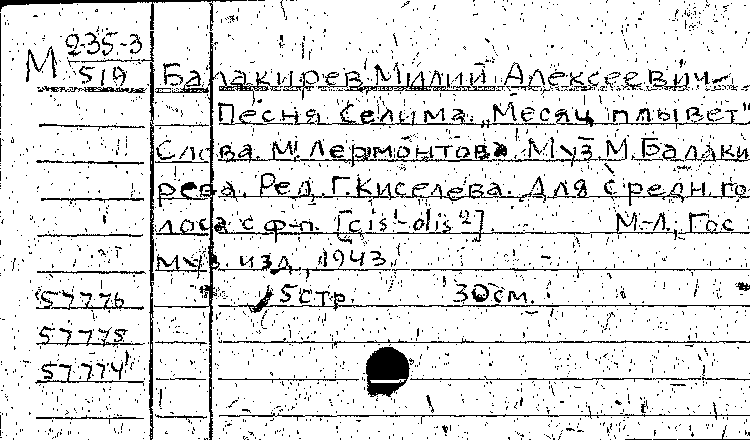 М 235-3
519 Балакирев Милий Алексеевич
Песня Селима „Месяц плывет"
Слова М. Лермонтова. Муз. М. Балаки
рева. Ред. Г. Киселева. Для средн. го
лоса с ф-п. [cis¹-dis²]. М-Л., Гос.
муз. изд., 1943
57776 5 стр. 30 см.
57778
57774